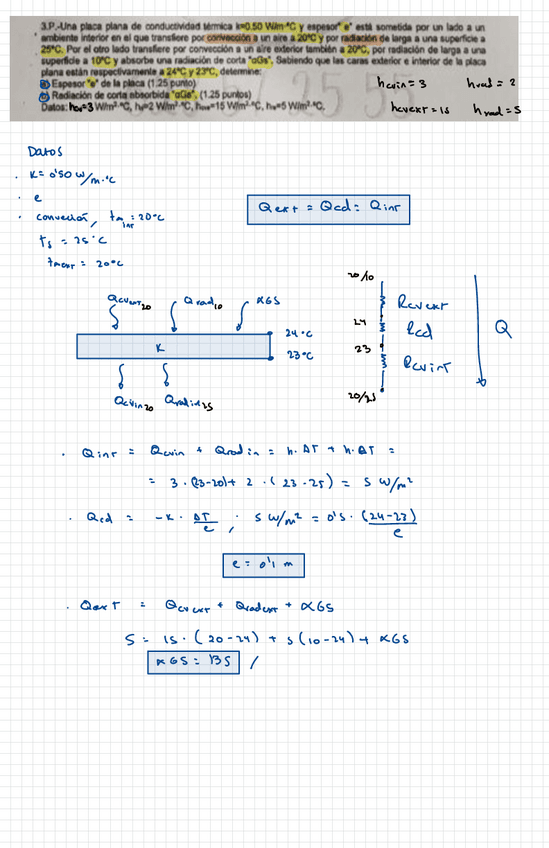 3.P.-Una placa plana de conductividad térmica k=0.50 W/m·ºC y espesor "e" está sometida por un lado a un
ambiente interior en el que transfiere por convección a un aire a 20ºC y por radiación de larga a una superficie a
25ºC. Por el otro lado transfiere por convección a un aire exterior también a 20ºC, por radiación de larga a una
superficie a 10ºC y absorbe una radiación de corta "αGs". Sabiendo que las caras exterior e interior de la placa
plana están respectivamente a 24ºC y 23ºC, determine:
a) Espesor "e" de la placa (1.25 punto)
b) Radiación de corta absorbida "αGs". (1.25 puntos)
Datos: W/m²·ºC, W/m²·ºC, =15 W/m²·ºC, =5 W/m²·ºC.
hcvin = 3 hrad = 2
hcvext = 15 hrad = 5
Datos
· K = 0'50 W/m·ºC
· e
· convección, t∞int = 20ºC
ts = 25ºC
t∞ext = 20ºC
Qext = Qcd = Qint
Qcvext20 Qrad10 αGS
24ºC
K
23ºC
Qcvin20 Qradint25
20/10
Rcvext
24
Rcd
23
Rcvint
20/25
Q
· Qint = Qcvin + Qradin = h·ΔT + h·ΔT =
= 3·(23-20) + 2·(23-25) = 5 W/m²
· Qcd = -K·ΔT/e ; 5 W/m² = 0'5·(24-23)/e
e = 0'1 m
· Qext = Qcvext + Qradext + αGS
5 = 15·(20-24) + 5(10-24) + αGS
αGS = 135 /